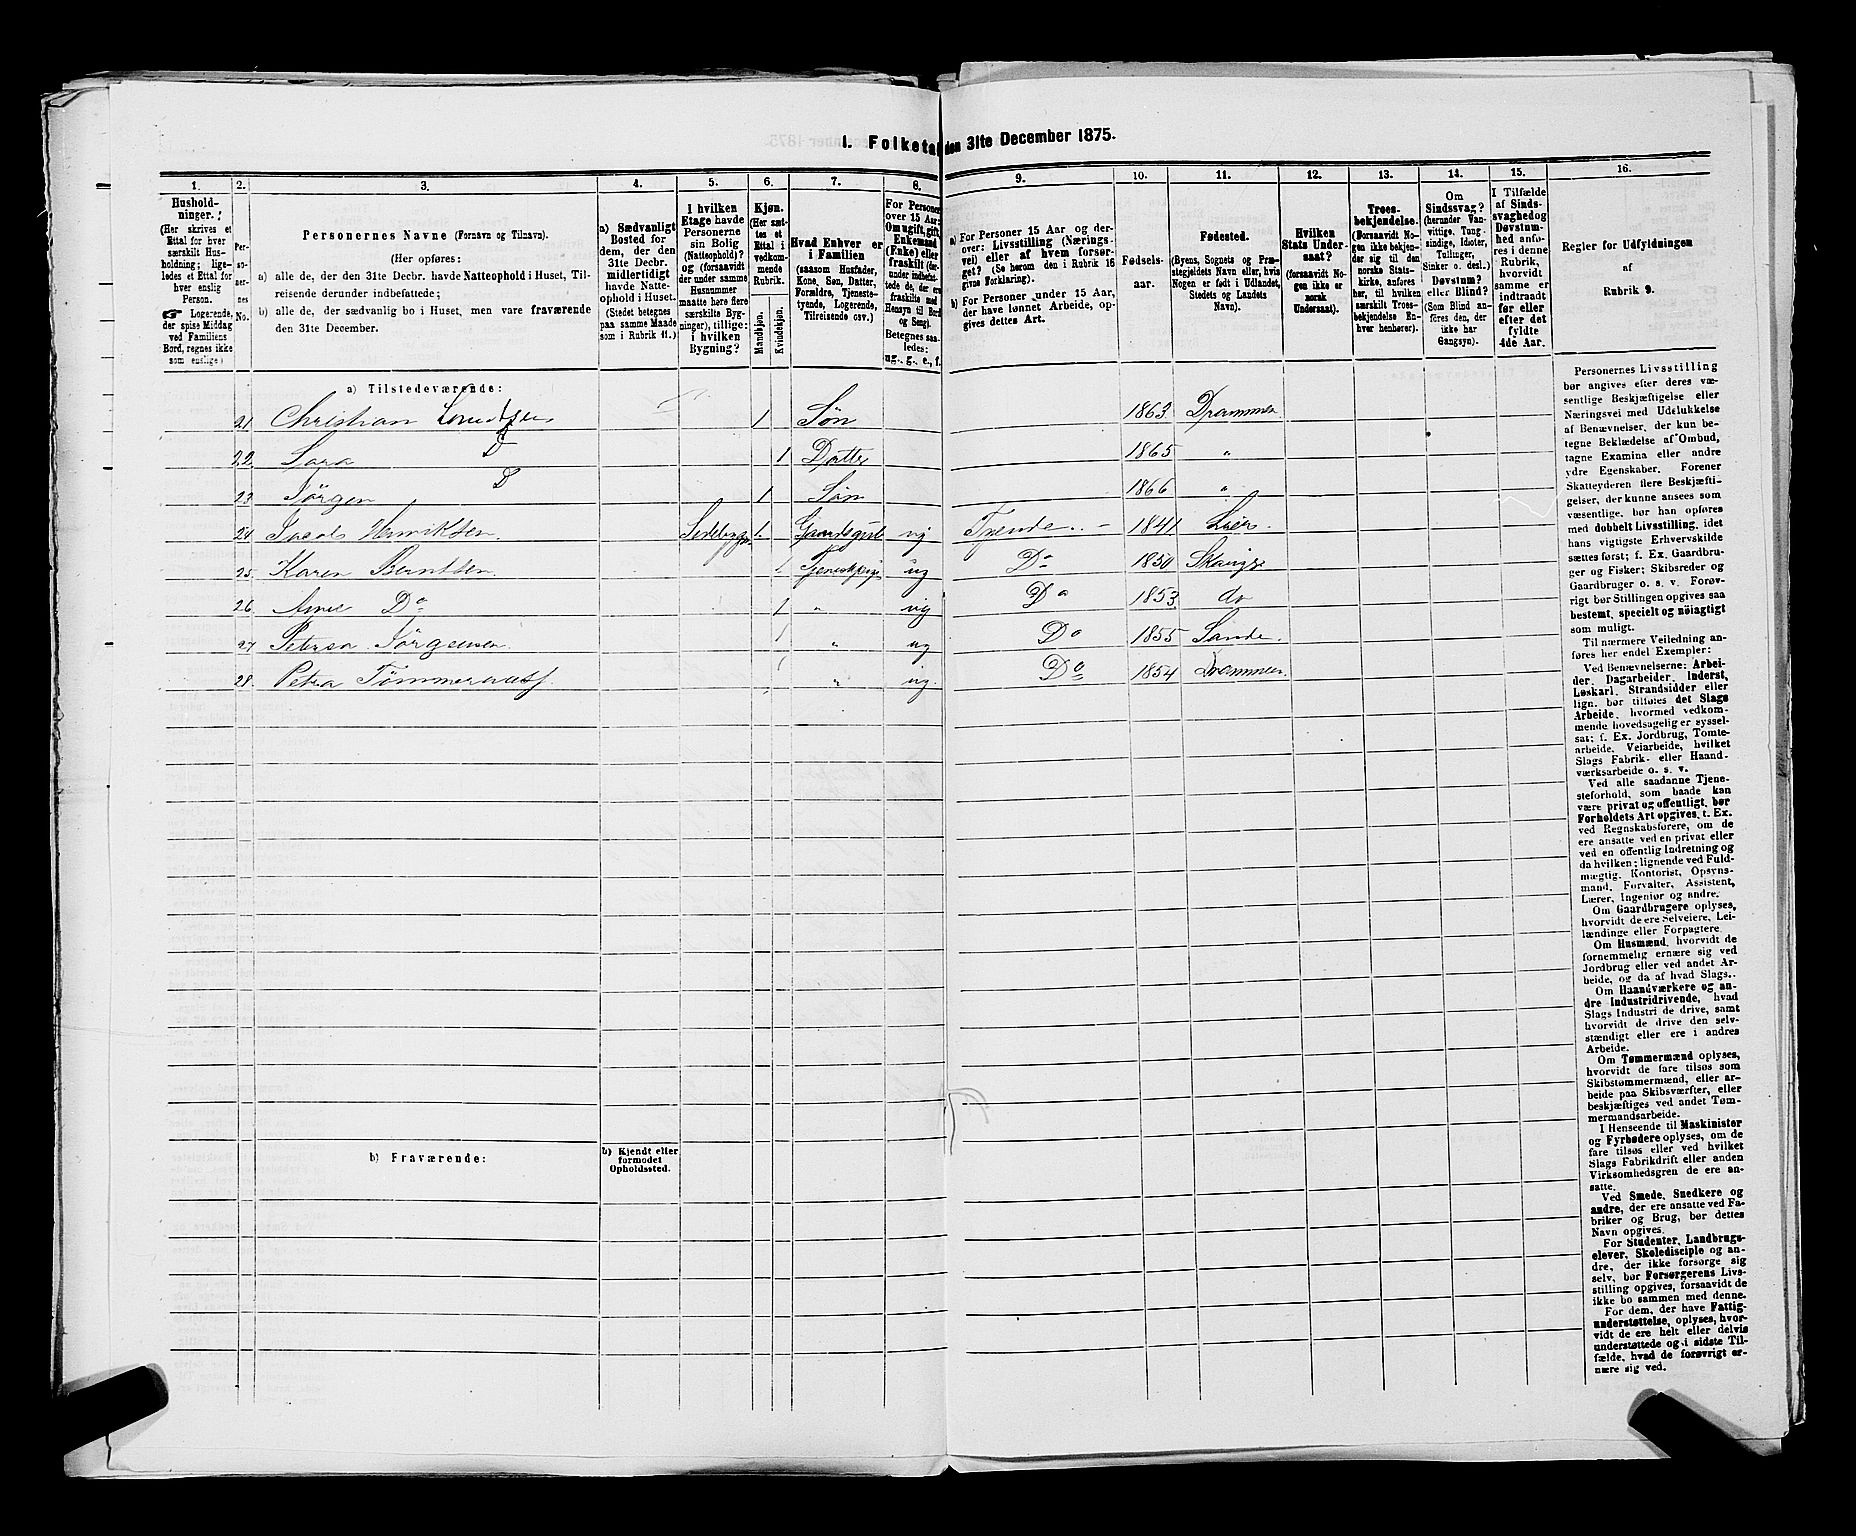 I. Folketal den 31te December 1875.
1. 2. 3. 4. 5. 6. 7. 8. 9. 10. 11. 12. 13. 14. 15. 16.
Hushold-
ninger.
(Her skrives et
Ettal for hver
særskilt Hus-
holdning; lige-
ledes et Ettal for
hver enslig
Person.
☞ Logerende,
der spise Middag
ved Familiens
Bord, regnes ikke
som enslige)
Per-
so-
ner-
nes
No.
Personernes Navne (Fornavn og Tilnavn).
(Her opføres:
a) alle de, der den 31te Decbr. havde Natteophold i Huset, Til-
reisende derunder indbefattede;
b) alle de, der sædvanlig bo i Huset, men vare fraværende
den 31te December.
a) Sædvanligt
Bosted for
dem, der den
31te Decbr.
midlertidigt
havde Natte-
ophold i Huset.
(Stedet betegnes
paa samme Maade
som i Rubrik 11.)
I hvilken
Etage havde
Personerne
sin Bolig
(Natteophold)?
og (forsaavidt
der under samme
Husnummer
maatte høre flere
særskilte Byg-
ninger), tillige:
i hvilken
Bygning?
Kjøn.
(Her sæt-
tes et
Ettal i
vedkom-
mende
Rubrik.
Mandkjøn.
Kvindekjøn.
Hvad Enhver er
i Familien
(saasom Husfader,
Kone, Søn, Datter,
Forældre, Tjeneste-
tyende, Logerende,
Tilreisende osv.)
For Personer
over 15 Aar:
Om ugift, gift,
Enkemand
(Enke) eller
fraskilt (der-
under indbefat-
tede de, der ere
fraskilte med
Hensyn til Bord
og Seng).
Betegnes saa-
ledes:
ug., g., e., f.
a) For Personer 15 Aar og der-
over: Livsstilling (Nærings-
vei) eller af hvem forsør-
get? (Se herom den i Rubrik 16
givne Forklaring).
b) For Personer under 15 Aar,
der have lønnet Arbeide, op-
gives dettes Art.
Fødsels-
aar.
Fødested.
(Byens, Sognets og Præ-
stegjeldets Navn eller, hvis
Nogen er født i Udlandet,
Stedets og Landets
Navn).
Hvilken
Stats Under-
saat?
(forsaavidt No-
gen ikke er
norsk
Undersaat).
Troes-
bekjendelse.
(Forsaavidt No-
gen ikke bekjen-
der sig til den
norske Stats-
kirke, anføres
her, til hvilken
særskilt Troes-
bekjendelse En-
hver henhører).
Om
Sindssvag?
(herunder Van-
vittige, Tung-
sindige, Idioter,
Tullinger,
Sinker o. desl.)
Døvstum?
eller Blind?
(Som Blind an-
føres den, der
ikke har
Gangsyn).
I Tilfælde
af Sinds-
svaghed og
Døvstum-
hed anfø-
res i denne
Rubrik,
hvorvidt
samme er
indtraadt
før eller
efter det
fyldte
4de Aar.
Regler for Udfyldningen
af
Rubrik 9.
a) Tilstedeværende:
21 Christian 1 Søn 1863 Drammen
22 Sara D 1 Datter 1865 "
23 Jörgen D 1 Søn 1866 "
24 Jacob Henriksen 1 Gaardsgut ug Tjende 1841 Lier
25. Karen Berntsen 1 ug Do 1850 Skouge
26 Do 1 " ug Do 1853 do
27 Jörgensen 1 " ug Do 1855 Sande
28. Petra 1 " ug Do 1854 Drammen
b) Fraværende:
b) Kjendt eller
formodet
Opholdssted.
Personernes Livsstilling
bør angives efter deres væ-
sentlige Beskjæftigelse eller
Næringsvei med Udelukkelse
af Benævnelser, der kun be-
tegne Beklædelse af Ombud,
tagne Examina eller andre
ydre Egenskaber. Forener
Skatteyderen flere Beskjæfti-
gelser, der kunne ansees som
væsentlige, bør han opføres
med dobbelt Livsstilling, idet
hans vigtigste Erhvervskilde
sættes først; f. Ex. Gaardbru-
ger og Fisker; Skibsreder og
Gaardbruger o. s. v. Forøv-
rigt bør Stillingen opgives saa
bestemt, specielt og nøiagtigt
som muligt.
Til nærmere Veiledning an-
føres her endel Exempler:
Ved Benævnelserne: Arbei-
der, Dagarbeider, Inderst,
Løskarl, Strandsidder eller
lign. bør tilføies det Slags
Arbeide, hvormed vedkom-
mende hovedsagelig er syssel-
sat; f. Ex. Jordbrug, Tomte-
arbeide, Veiarbeide, hvilket
Slags Fabrik- eller Haand-
værksarbeide o. s. v.
Ved alle saadanne Tjene-
steforhold, som baade kan
være privat og offentligt, bør
Forholdets Art opgives, t. Ex.
ved Regnskabsførere, om de
ere ansatte ved en privat eller
ved en offentlig Indretning og
da hvilken; lignende ved Fuld-
mægtig, Kontorist, Opsyns-
mand, Forvalter, Assistent,
Lærer, Ingeniør og andre.
Om Gaardbrugere oplyses,
hvorvidt de ere Selveiere, Lei-
lændinge eller Forpagtere.
Om Husmænd, hvorvidt de
fornemmelig ernære sig ved
Jordbrug eller ved andet Ar-
beide, og da af hvad Slags.
Om Haandværkere og an-
dre Industridrivende, hvad
Slags Industri de drive, samt
hvorvidt de drive den selv-
stændigt eller ere i andres
Arbeide.
Om Tømmermænd oplyses,
hvorvidt de fare tilsøs som
Skibstømmermænd, eller ar-
beide paa Skibsværfter, eller
beskjæftiges ved andet Tøm-
mermandsarbeide.
I Henseende til Maskinister
og Fyrbødere oplyses, om de
fare tilsøs eller ved hvilket
Slags Fabrikdrift eller anden
Virksomhedsgren de ere an-
satte.
Ved Smede, Snedkere og
andre, der ere ansatte ved Fa-
briker og Brug, bør dettes
Navn opgives.
For Studenter, Landbrugs-
elever, Skoledisciple og an-
dre, der ikke forsørge sig
selv, bør Forsørgerens Livs-
stilling opgives, forsaavidt de
ikke bo sammen med denne.
For dem, der have Fattig-
understøttelse, oplyses, hvor-
vidt de ere helt eller delvis
understøttede og i sidste Til-
fælde, hvad de forøvrigt er-
nære sig ved.